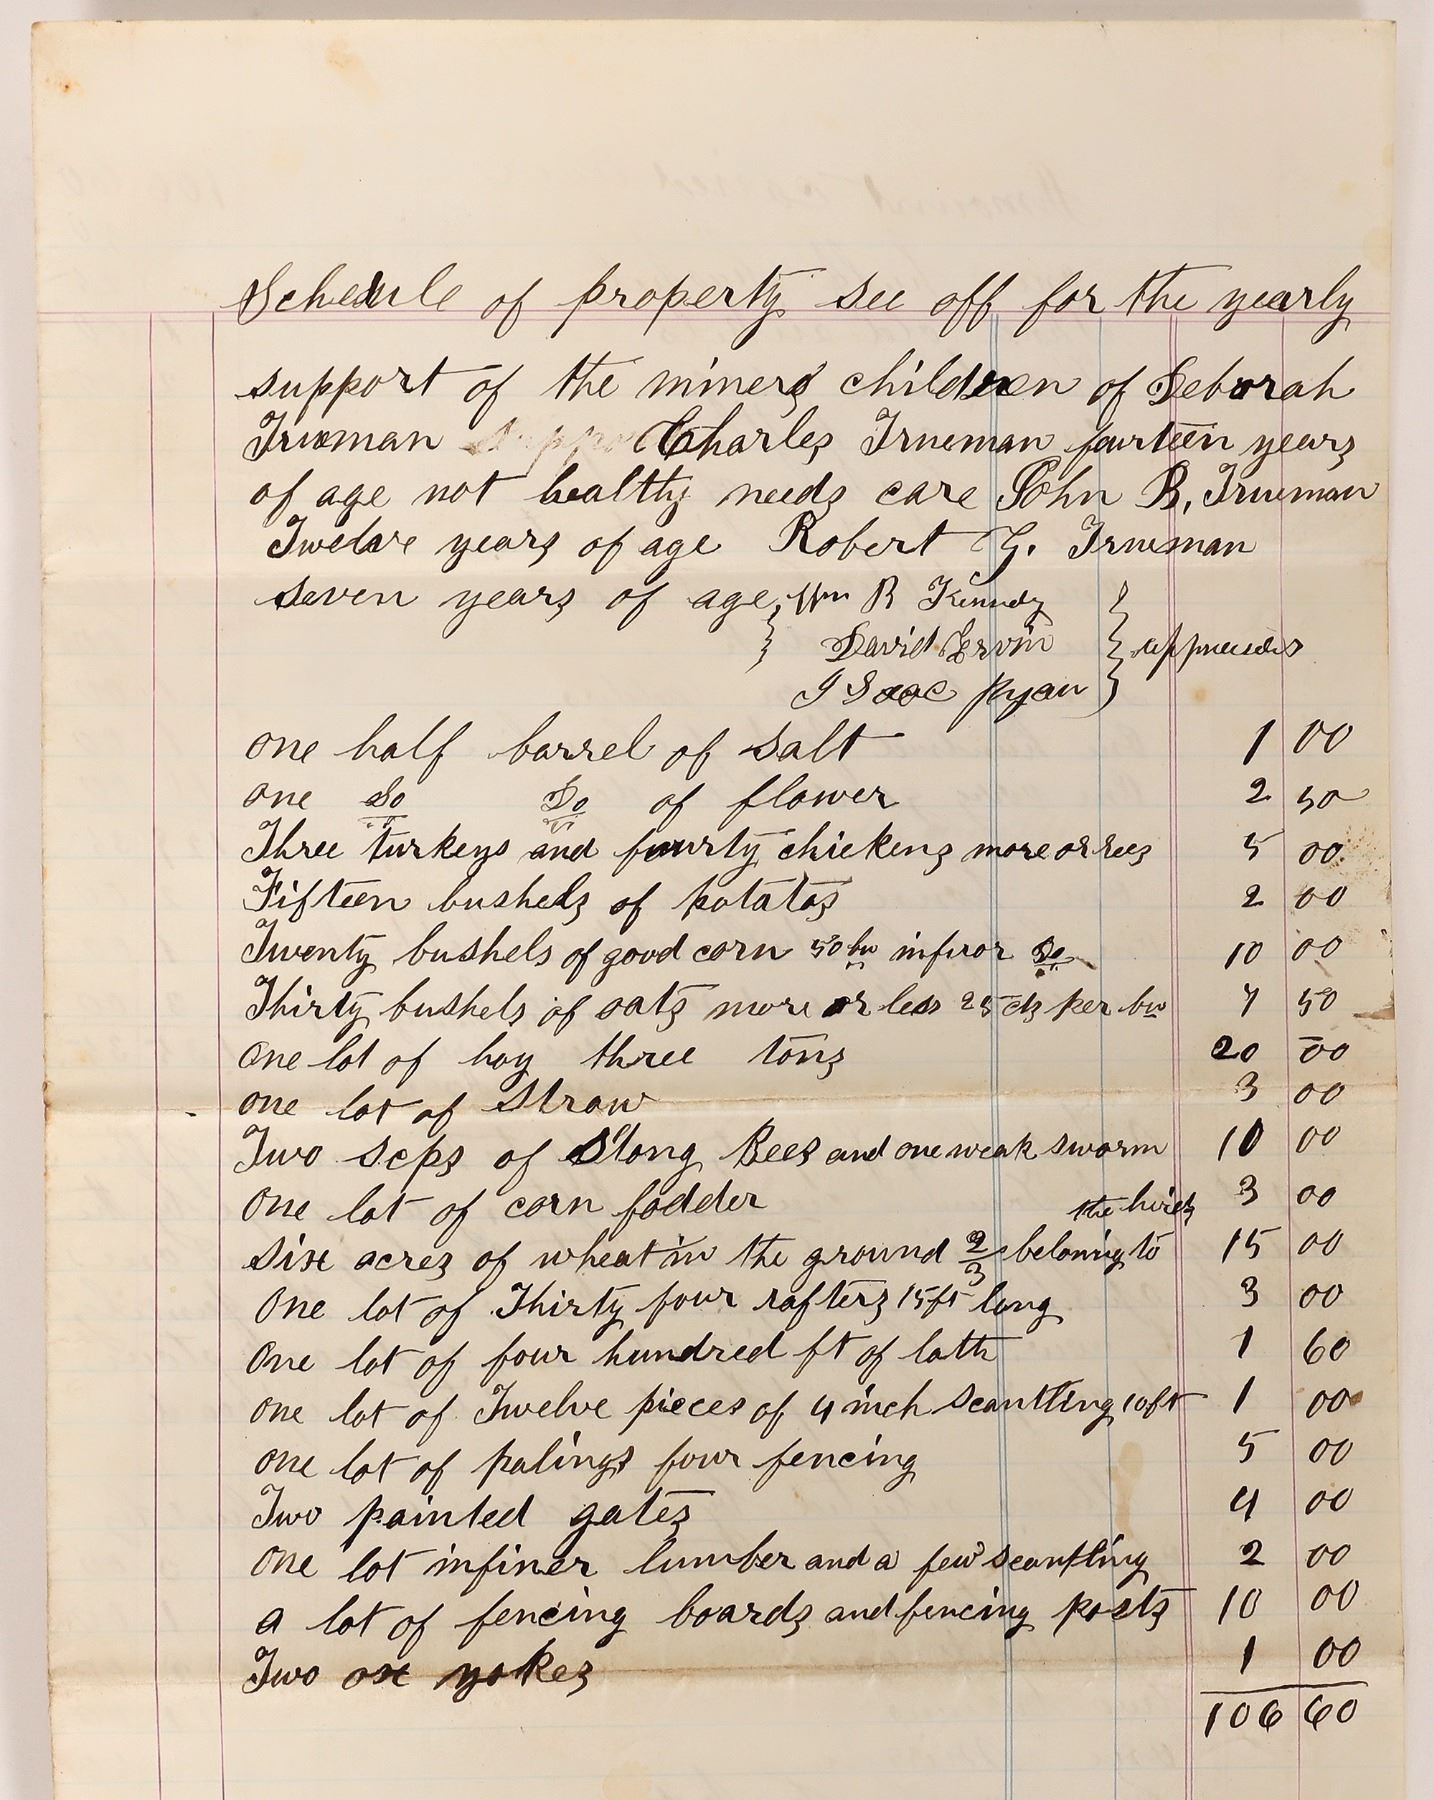 Schedule of property see off for the yearly
support of the miners children of Deborah
Trueman Charles Trueman fourteen years
of age not healthy needs care John B, Trueman
Twelve years of age Robert G. Trueman
seven years of age, Wm R Kennedy
David Ervin appraisers
Isaac Ryan
one half barrel of salt 1 00
one Do Do of flower 2 50
Three turkeys and fourty chickens more or less 5 00
Fifteen bushels of potatos 2 00
Twenty bushels of good corn 50 bu inferor Do 10 00
Thirty bushels of oats more or less 25 cts per bu 7 50
One lot of hay three tons 20 00
one lot of straw 3 00
Two seps of Stong Bees and one weak sworm 10 00
One lot of corn fodder 3 00
the hires
six acres of wheat in the ground 2/3 belonig to 15 00
One lot of Thirty four rafters 15 ft long 3 00
One lot of four hundred ft of lath 1 60
one lot of Twelve pieces of 4 inch scantling 10 ft 1 00
one lot of palings four fencing 5 00
Two painted gates 4 00
One lot infiner lumber and a few scantling 2 00
a lot of fencing boards and fencing posts 10 00
Two ox yokes 1 00
106 60